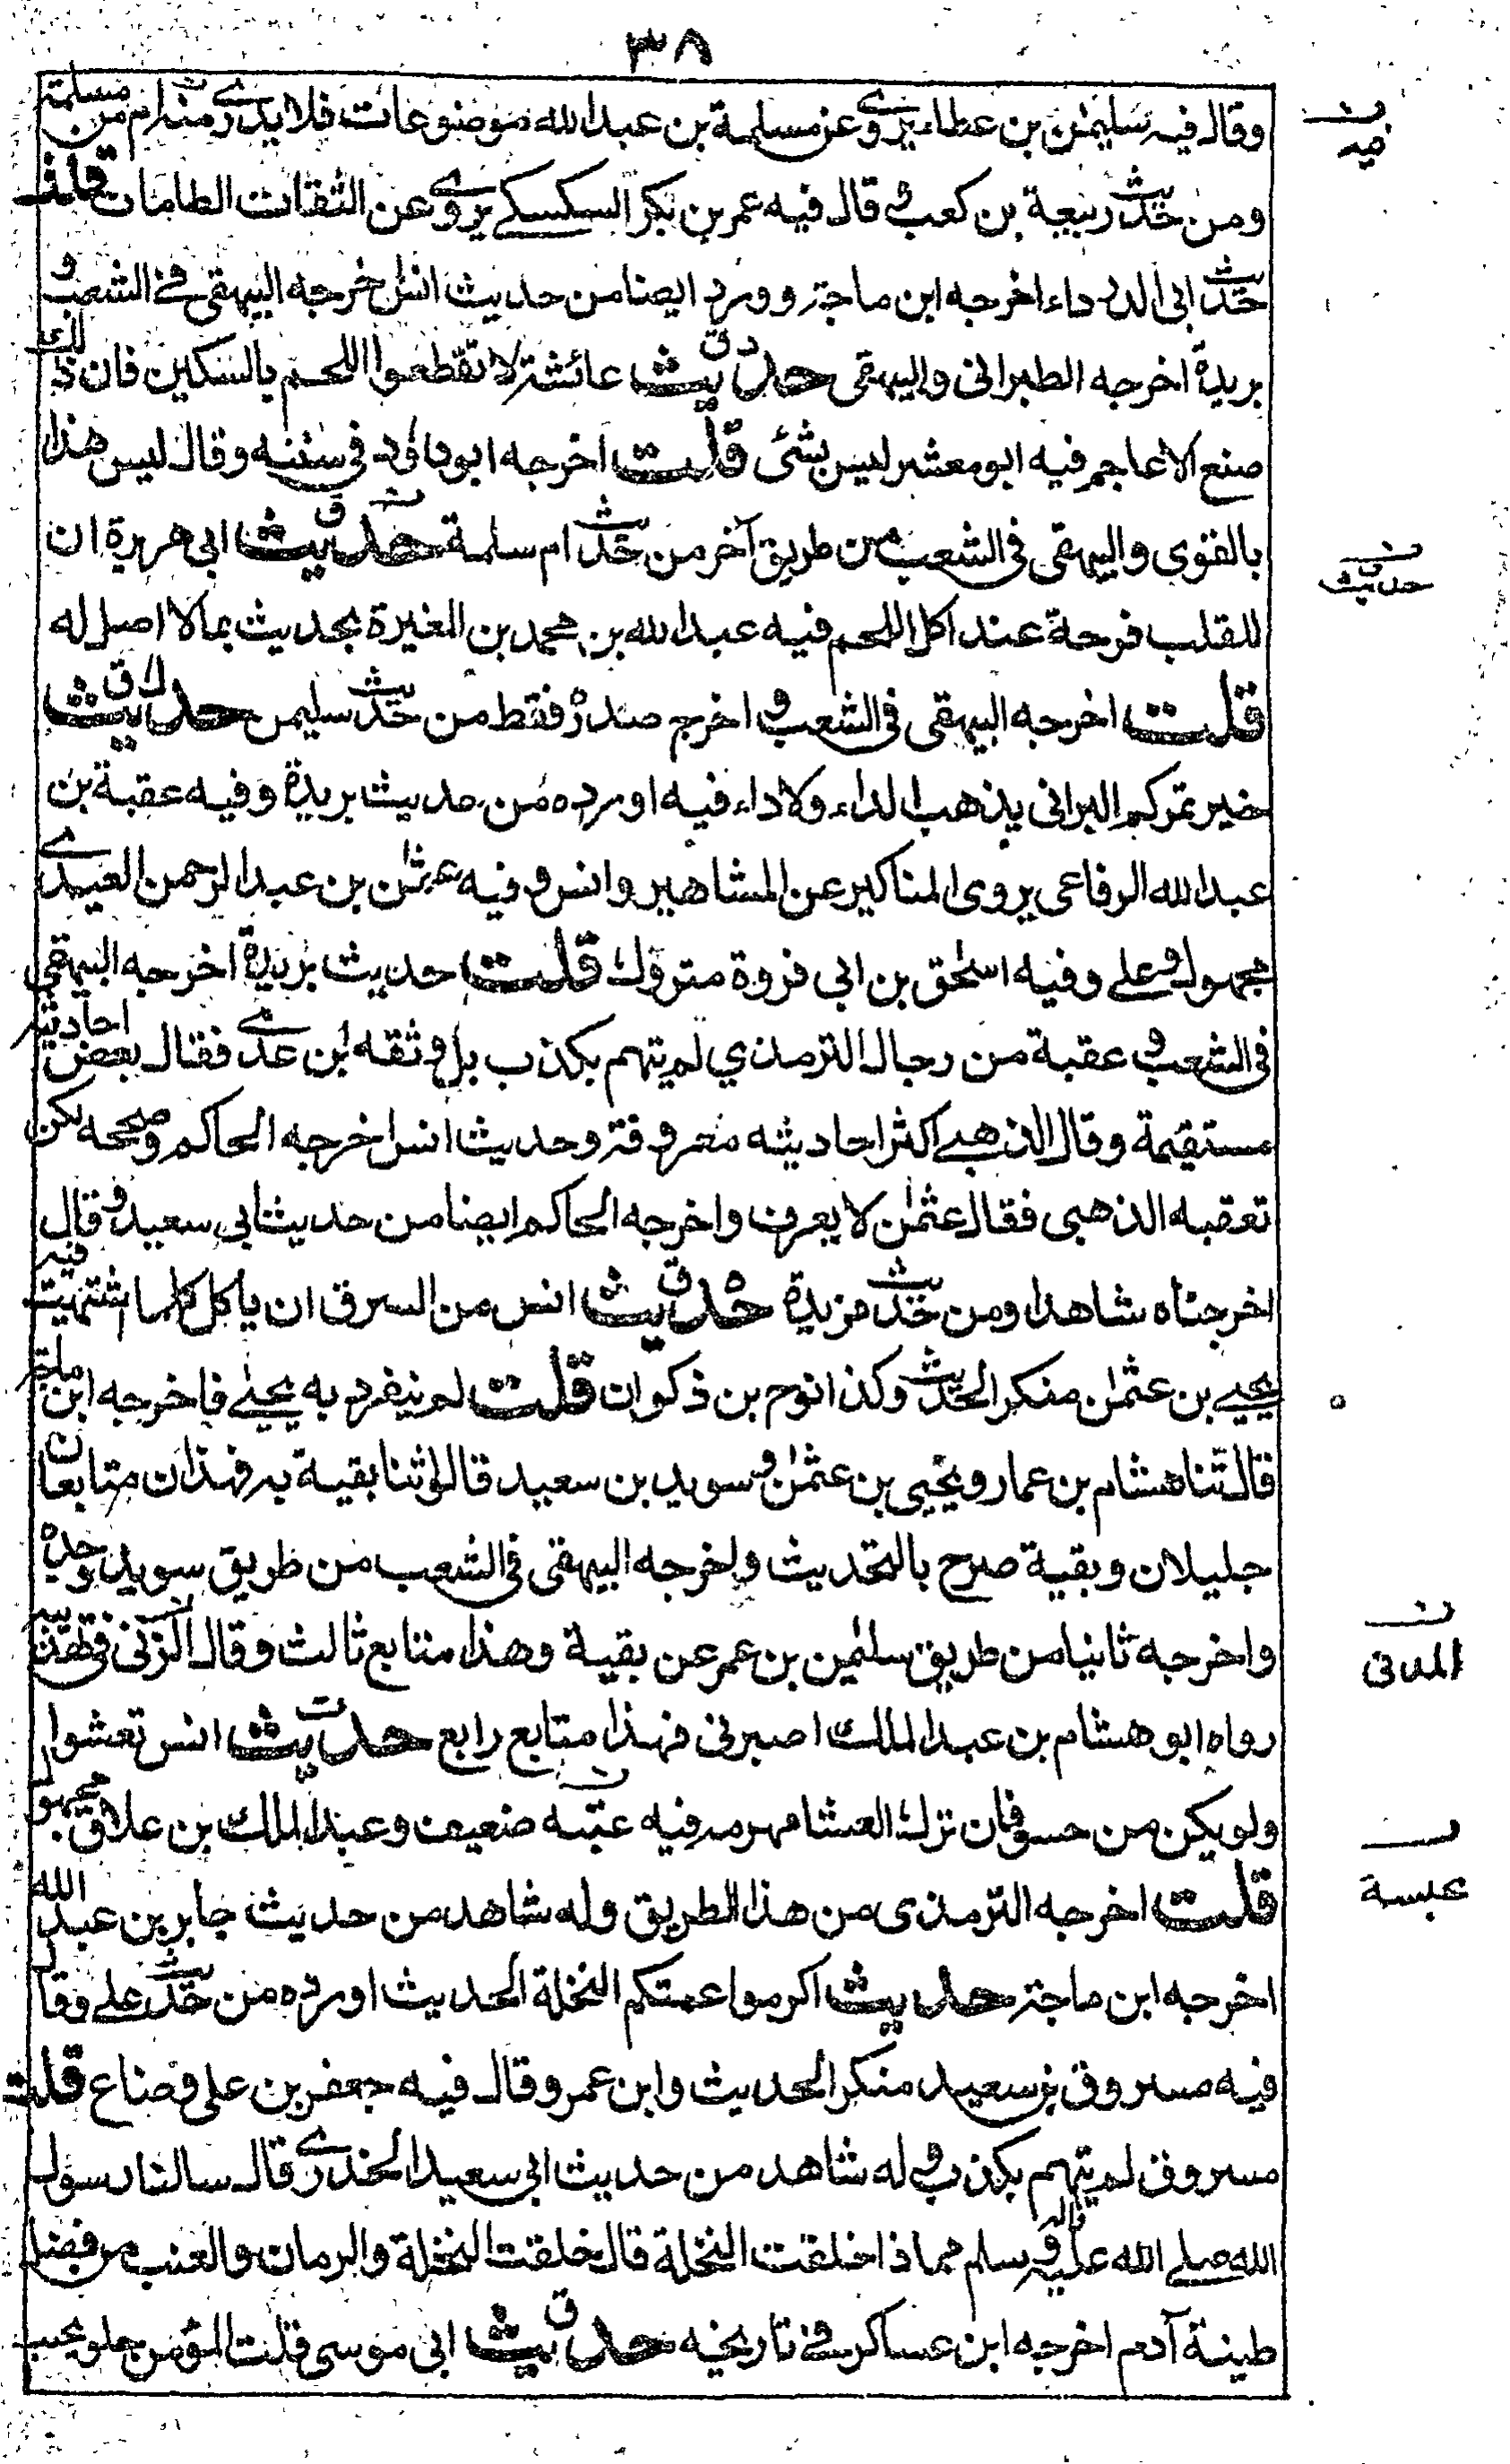 ٣٨
وقال فيه سليمٰن بن عطاء يروى عن مسلمة بن عبد الله موضوعات فلا يدرى منه ام من مسلمة
ومن حديث ربيعة بن كعب و قال فيه عمر بن بكر السكسكے يروى عن الثقات الطامات قلت
حديث ابى الدرداء اخرجه ابن ماجة وورد ايضا من حديث انس اخرجه البيهقى فے الشعب و
بريدة اخرجه الطبرانى والبيهقى حديث عائشة لا تقطعوا اللحم بالسكين فان ذلك
صنع الاعاجم فيه ابو معشر ليس بشئ قلت اخرجه ابو داؤد فى سننه وقال ليس هذا
بالقوى والبيهقى فى الشعب من طريق آخر من حديث ام سلمة حديث ابى هريرة ان
للقلب فرحة عند اكل اللحم فيه عبد الله بن محمد بن المغيرة يحديث بما لا اصل له
قلت اخرجه البيهقى فى الشعب و اخرج صدره فقط من حديث سليمن حديث
خير تمركم البرانى يذهب الداء ولا داء فيه اورده من حديث بريدة وفيه عقبة بن
عبد الله الرفاعى يروى المناكير عن المشاهير وانس و فيه عثمٰن بن عبد الرحمن العبدے
مجهول و على وفيه اسحٰق بن ابى فروة متروك قلت حديث بريدة اخرجه البيهقى
فى الشعب و عقبة من رجال الترمذي لم يتهم بكذب بل وثقه ابن عدے فقال بعض احاديثه
مستقيمة وقال الذهبے اكثر احاديثه معروفة وحديث انس اخرجه الحاكم وصححه لكن
تعقبه الذهبى فقال عثمٰن لا يعرف واخرجه الحاكم ايضا من حديث ابى سعيد و قال فيه
اخرجناه شاهدا ومن حديث مزيدة حديث انس من السرق ان ياكل كلما اشتهيت
يحيے بن عثمٰن منكر الحديث وكذا نوح بن ذكوان قلت لم ينفرد به يحيٰے فاخرجه ابن ماجة
قال ثنا هشام بن عمار ويحيى بن عثمٰن و سويد بن سعيد قالوا ثنا بقية به فهذان متابعان
جليلان وبقية صرح بالتحديث واخرجه البيهقى فى الشعب من طريق سويد وحده
واخرجه ثانيا من طريق سليٰمن بن عمر عن بقية وهذا متابع ثالث وقال المزنى فى تهذيبه
رواه ابو هشام بن عبد الملك اصبرنى فهذا متابع رابع حديث انس تعشوا
ولو بكف من حسو فان ترك العشا مهرمه فيه عتبه ضعيف وعبد الملك بن علاق مجهول
قلت اخرجه الترمذى من هذا الطريق وله شاهد من حديث جابر بن عبد الله
اخرجه ابن ماجة حديث اكرموا عمتكم النخلة الحديث اورده من حديث على وقال
فيه مسروق بن سعيد منكر الحديث وابن عمر وقال فيه جعفر بن على وضاع قلت
مسروق لم يتهم بكذب و له شاهد من حديث ابى سعيد الخدرى قال سالنا رسول
الله صلے الله عليه واله وسلم مماذا خلقت النخلة قال خلقت النخلة والرمان والعنب من فضل
طينة آدم اخرجه ابن عساكر فے تاريخه حديث ابى موسى قلت المؤمن حلو يحب
ن
فيه
ن
حديث
ن
المدنى
ن
عبسة